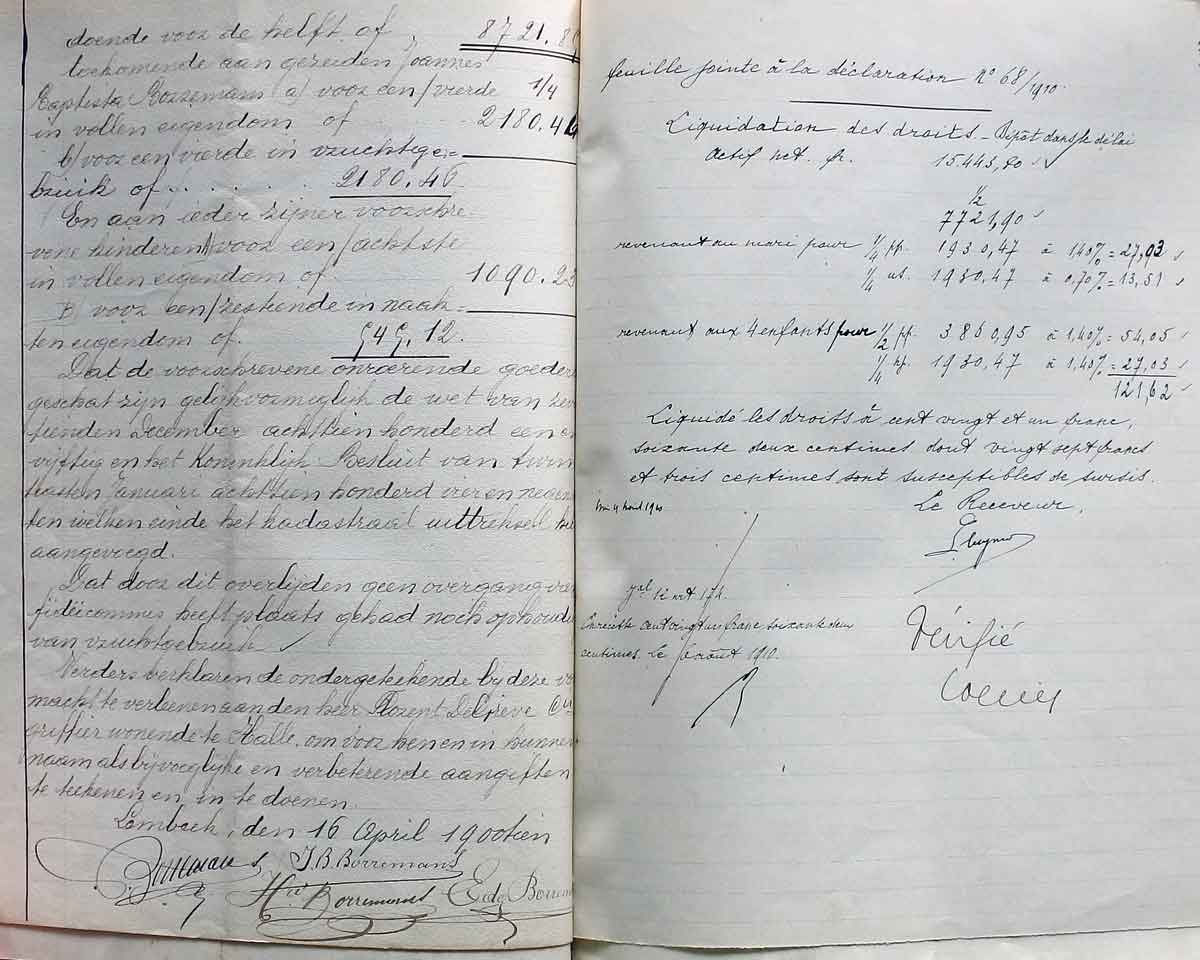 doende voor de helft of 8721.8
toekomende aan gezeiden Joannes
Baptista Borremans a) voor een/vierde 1/4
in vollen eigendom of 2180.46
b/voor een vierde in vruchtge=
bruik of . . . . . . . 2180.46
En aan ieder zijner voorschre-
vene kinderen A) voor een/achtste
in vollen eigendom of 1090.23
B) voor een/zestiende in naak=
ten eigendom of. 545.12.
Dat de voorschrevene onroerende goeder
geschat zijn gelijkvormiglijk de wet van zev
tienden December achttien honderd een en
vijftig en het Koninklijk Besluit van twin
tigsten Januari achttien honderd vier en negen
ten welken einde het kadastraal uittreksel hi
aangevoegd.
Dat door dit overlijden geen overgang va
fideïcommis heeft plaats gehad noch ophoude
van vruchtgebruik
Verders verklaren de ondergetekende bij deze vo
macht te verleenen aan den heer Florent De Greve
griffier wonende te Halle, om voor hen en in hunnen
naam als bijvoeglijke en verbeterende aangiften
te teekenen en in te doenen.
Lembeek, den 16 April 19 ootien
Borremans J. B. Borremans
Borremans Edg Borrem
feuille jointe à la déclaration n° 68/1910.
Liquidation des droits _ Dépôt dans le délai
Actif net. fr. 15.443,80
1/2
7721,90
revenant au mari pour 1/4 pp. 1930,47 à 1,40% = 27,03
1/4 us. 1930,47 à 0,70% = 13,51
revenant aux 4 enfants pour 1/2 pp. 3860,95 à 1,40% = 54,05
1/4 np. 1930,47 à 1,40% = 27,03
121,62
Liquidé les droits à cent vingt et un francs,
soixante deux centimes dont vingt sept francs
et trois centimes sont susceptibles de sursis.
4 août 1910
Le Receveur,
12 art 174.
Enrecette cent vingt un franc soixante deux
centimes. Le août 1910.
Vérifié